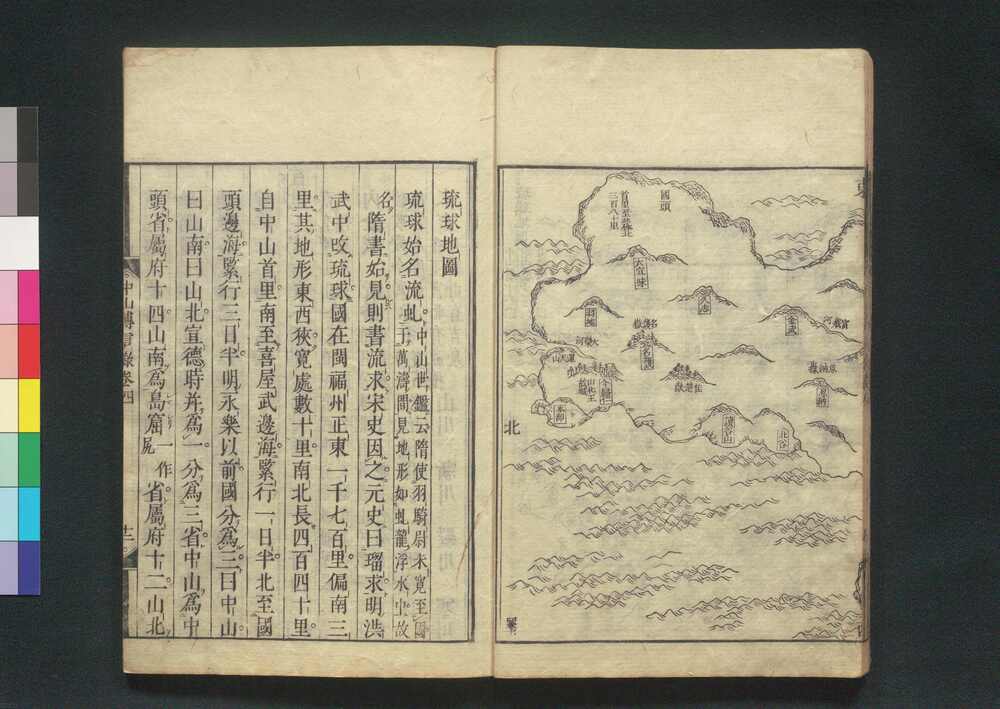 國頭
首里至極北
三百八十里
大宜味
久志
金武
羽地
名護嶽
恩納
讀谷山
北谷
本部
北
琉球地圖
琉球始名流虬。中山世鑑云隋使羽騎尉朱寛至國于萬濤間見地形如虬龍浮水中故
名。隋書始見則書流求宋史因之元史曰瑠求明洪
武中改琉球國在閩福州正東一千七百里偏南三
里其地形東西狹寛處數十里南北長四百四十里
自中山首里南至喜屋武邊海緊行一日半北至國
頭邊海緊行三日半明永樂以前國分爲三曰中山
曰山南曰山北宣德時并爲一分爲三省中山爲中
頭省屬府十四山南爲島窟一作尻省屬府十二山北
中山傳信錄卷四
十一